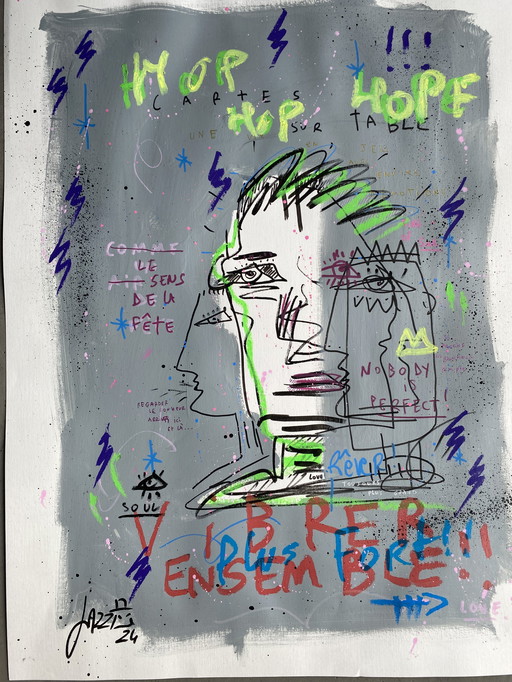 HY OP
HOPE
!!!
CARTES
HOP
SUR TABLE
UNE
COMME
LE
SENS
DE LA
FÊTE
NOBODY
IS
PERFECT!
REGARDER
LE BONHEUR
LOVE
Rêver!!
SOUL
VIBRER
PLUS FORT!!!
ENSEMBLE!!
LOVE
JAZZI
24